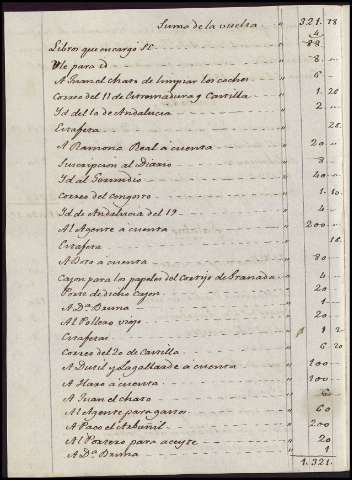 Suma de la vuelta 321. 28
4
Libros que encargó SE 88
Vle para id 8
A Juan el chato de limpiar los coches 6
Correo del 11 de Estremadura y Castilla 1. 20
Id del 10 de Andalucia 2
Estafeta 28
A Ramona Beal a cuenta 20
Suscripcion al Diario 8
Id al Gerundio 40
Correo del Congosto 1. 10
Id de Andalucia del 19 4
Al Agente a cuenta 200
Estafeta
A Soto a cuenta 80
Cajon para los papeles del Cortijo de Granada 4
Porte de dicho cajon 20
A Da. Bruna 1
Al Pollero viejo 20
Estafetas 1 2
Correo del 20 de Castilla 6 20
A Dutil y Lagallarde a cuenta 100
A Haro a cuenta 100
A Juan el chato 6
Al Agente para gastos 60
A Paco el Arbañil 200
Al Portero para aceyte 20
A Da. Bruna 1
1.321.